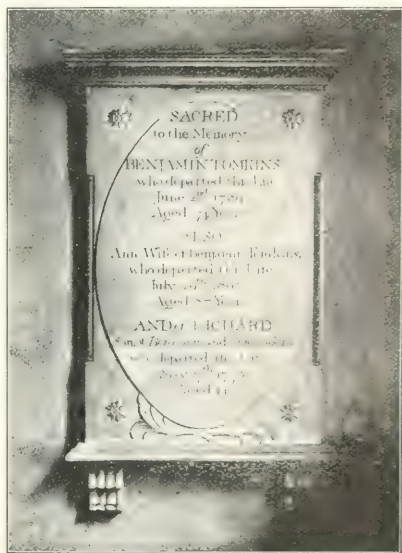 SACRED
to the Memory
of
BENJAMIN TOMKINS
who departed this Life
June 2nd
Aged 74 Years
ALSO
Ann Wife of Benjamin Tomkins,
who departed this Life
July
Aged
AND of RICHARD
Son of Benjamin and
who departed this Life
Novr
Aged